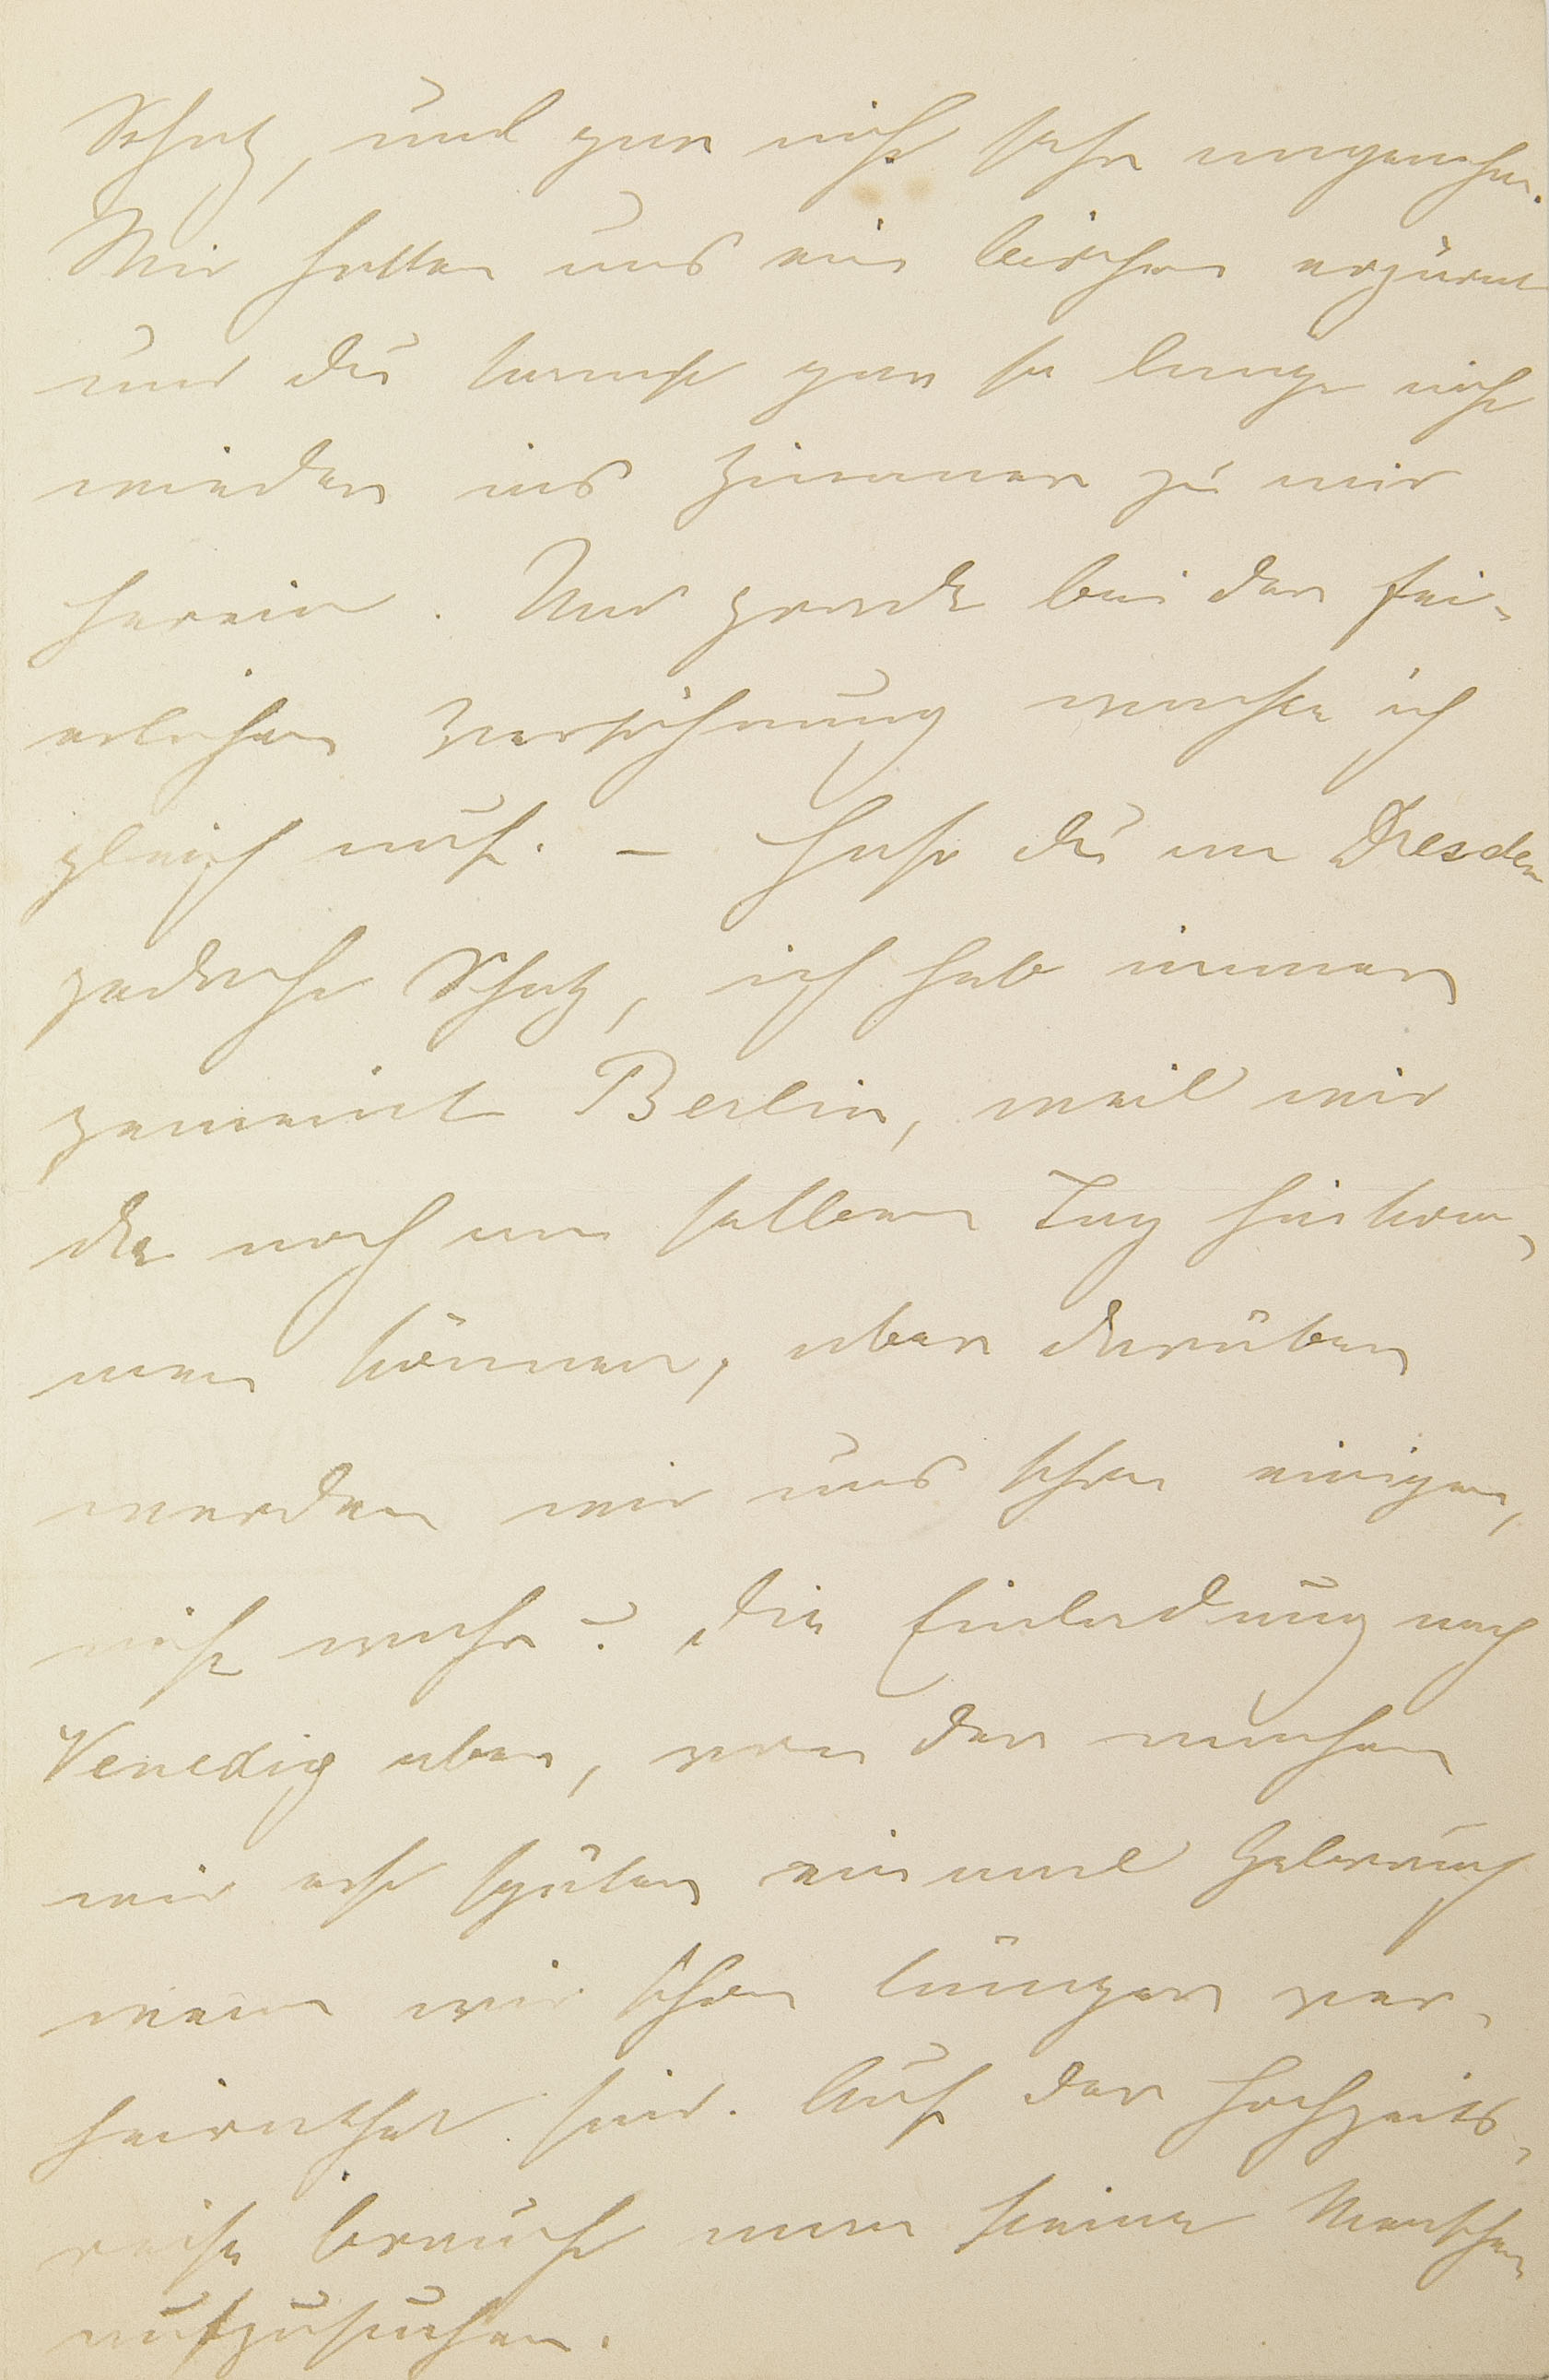 Schatz, und gar nicht sehr angenehm.
Wir hatten uns ein bischen erzürnt
und du kamst gar so lange nicht
wieder ins Zimmer zu mir
herein. Und grade bei der fei-
erlichen Versöhnung wachte ich
gleich auf. – Hast du an Dresden
gedacht Schatz, ich hab immer
gemeint Berlin, weil wir
da noch am selben Tag hinkom-
men können, aber darüber
werden wir uns schon einigen,
nicht wahr? Die Einladung nach
Venedig aber, von der machen
wir erst später einmal Gebrauch
wenn wir schon länger ver-
heirathet sind. Auf der Hochzeits-
reise braucht man keine Menschen
aufzusuchen.